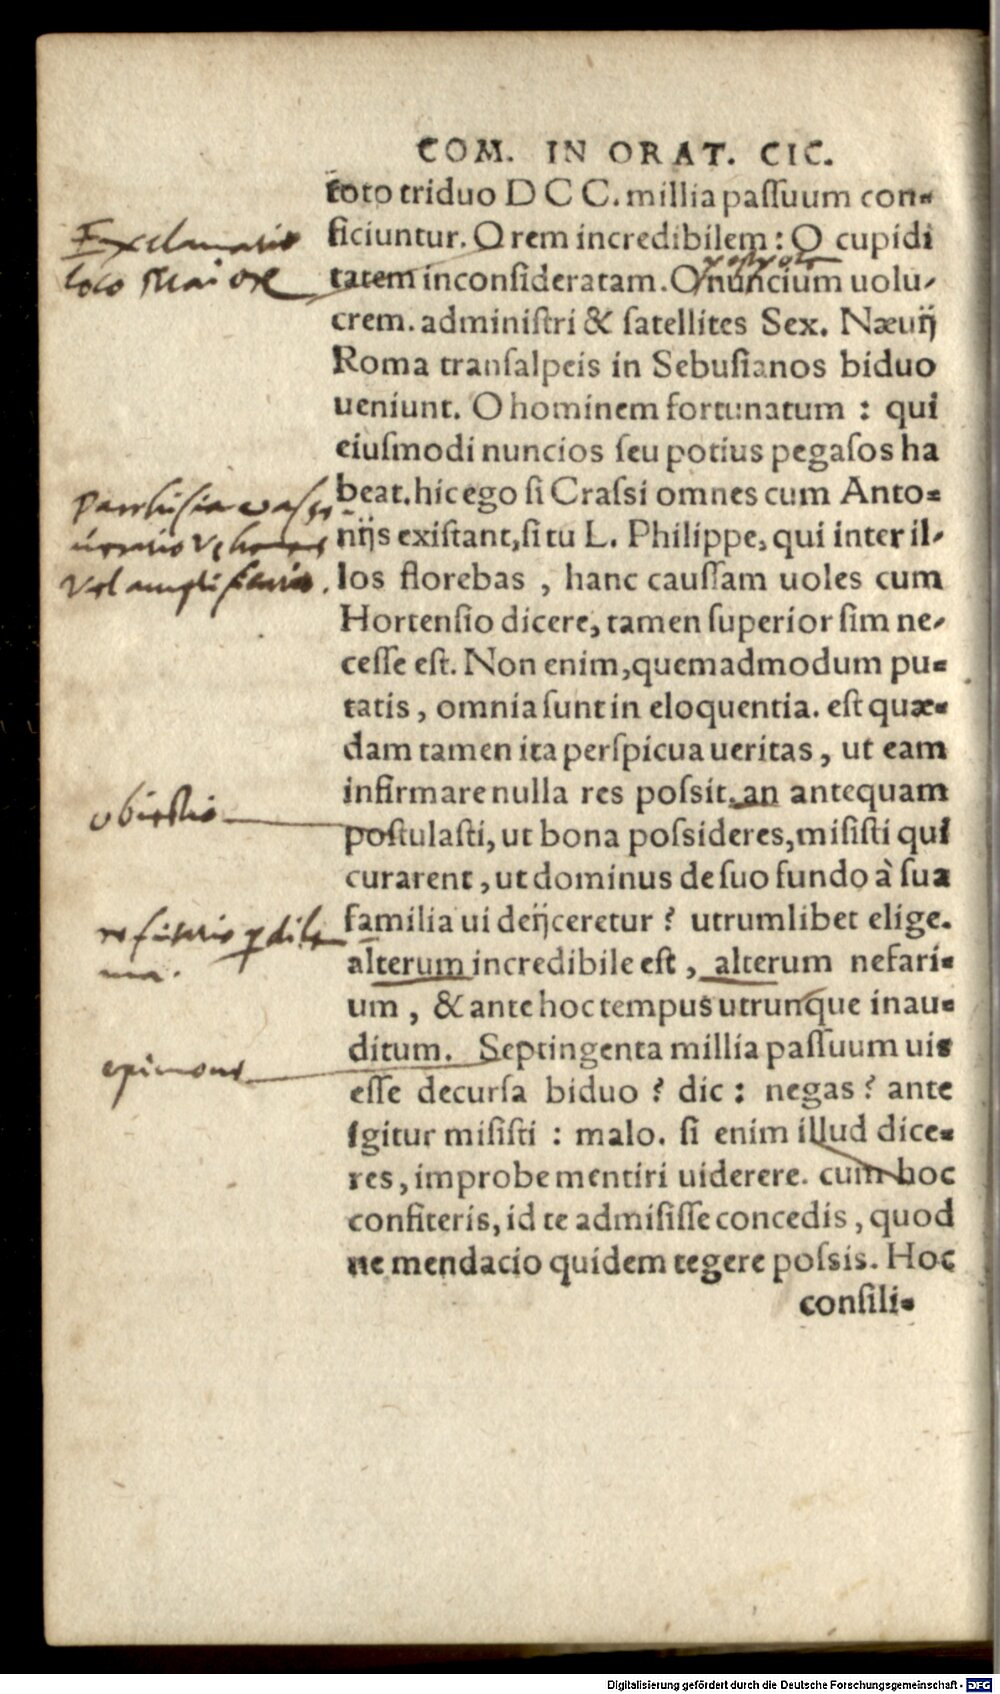 COM. IN ORAT. CIC.
toto triduo DCC. millia passuum con-
ficiuntur. O rem incredibilem: O cupidi
tatem inconsideratam. O nuncium uolu-
crem. administri & satellites Sex. Næuij
Roma transalpeis in Sebusianos biduo
ueniunt. O hominem fortunatum : qui
eiusmodi nuncios seu potius pegasos ha
beat. hic ego si Crassi omnes cum Anto-
nijs existant, si tu L. Philippe, qui inter il-
los florebas , hanc caussam uoles cum
Hortensio dicere, tamen superior sim ne-
cesse est. Non enim, quemadmodum pu-
tatis, omnia sunt in eloquentia. est quæ-
dam tamen ita perspicua ueritas, ut eam
infirmare nulla res possit. an antequam
postulasti, ut bona possideres, misisti qui
curarent, ut dominus de suo fundo à sua
familia ui deijceretur ? utrumlibet elige.
alterum incredibile est, alterum nefari-
um, & ante hoc tempus utrunque inau-
ditum. Septingenta millia passuum uis
esse decursa biduo ? dic : negas ? ante
igitur misisti : malo. si enim illud dice-
res, improbe mentiri uiderere. cum hoc
confiteris, id te admisisse concedis, quod
ne mendacio quidem tegere possis. Hoc
consili-
Exclamatio
loco
vel amplificatio.
obiectio
refutatio dilem
ma.
epimone
Digitalisierung gefördert durch die Deutsche Forschungsgemeinschaft - DFG